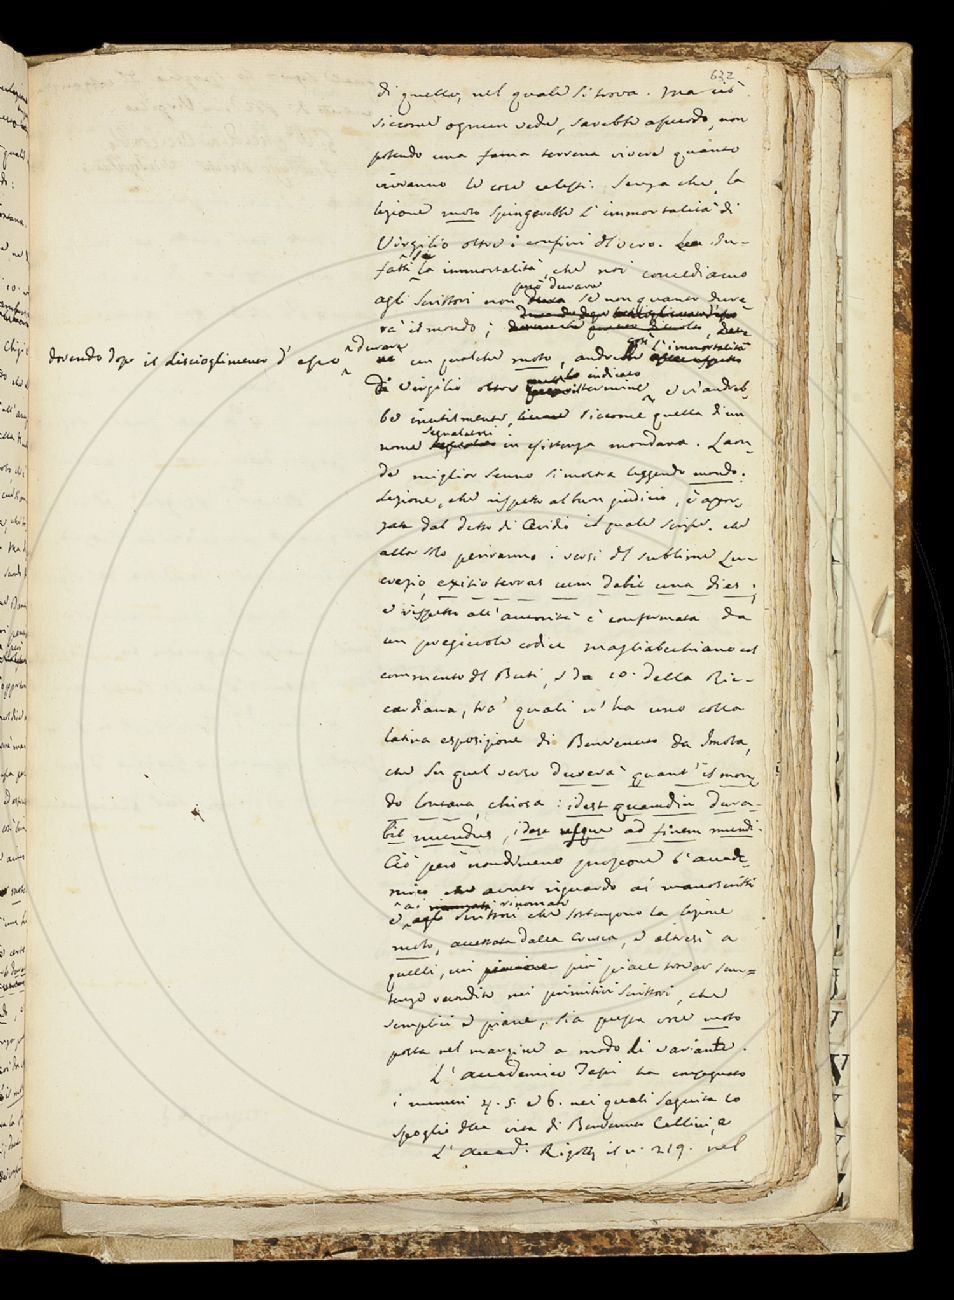 632
di quello, nel quale si trova. Ma ciò
siccome ognun vede, sarebbe assurdo, non
potendo una fama terrena vivere quanto
vivranno le cose celesti. Senza che, la
lezione moto spingerebbe l'immortalità di
Virgilio oltre i confini del vero. In-
fatti se la immortalità, che noi concediamo
agli Scrittori non può durare se non quanto dure-
rà il mondo;
dovendo dopo il discioglimento d'esso durare
un qualche moto, andrebbe così l'immortalità
di Virgilio oltre lo indicato termine, e v'andreb-
be inutilmente, siccome quella d'un
nome segnalato in esistenza mondana. Laon-
de miglior senno si mostra leggendo mondo.
Lezione, che rispetto al buon giudicio, è appog-
giata dal detto di Ovidio il quale scrisse che
allora periranno i versi del sublime Lu-
crezio, exitio terras cum dabit una dies;
e rispetto all'autorità è confermata da
un pregievole codice Magliabechiano col
commento del Buti, e da 10. della Ric-
cardiana, tra' quali v'ha uno colla
latina esposizione di Benvenuto da Imola,
che su quel verso durerà quant' il mon-
do lontana, chiosa: idest quamdiu dura-
bit mundus, idest usque ad finem mundi.
Ciò però nondimeno propone l'accade-
mico che avuto riguardo ai manoscritti
e ai rinomati scrittori che sostengono la lezione
moto, accettata dalla Crusca, e altresì a
quelli, cui più piace trovar sen-
tenze recondite nei primitivi scrittori, che
semplici e piane, sia questa voce moto
posta nel margine a modo di variante.
L'accademico ha consegnato
i numeri 4. 5. e 6. nei quali seguita lo
spoglio della vita di Benvenuto Cellini, e
L'Accad. Rigoli il n. 219. nel